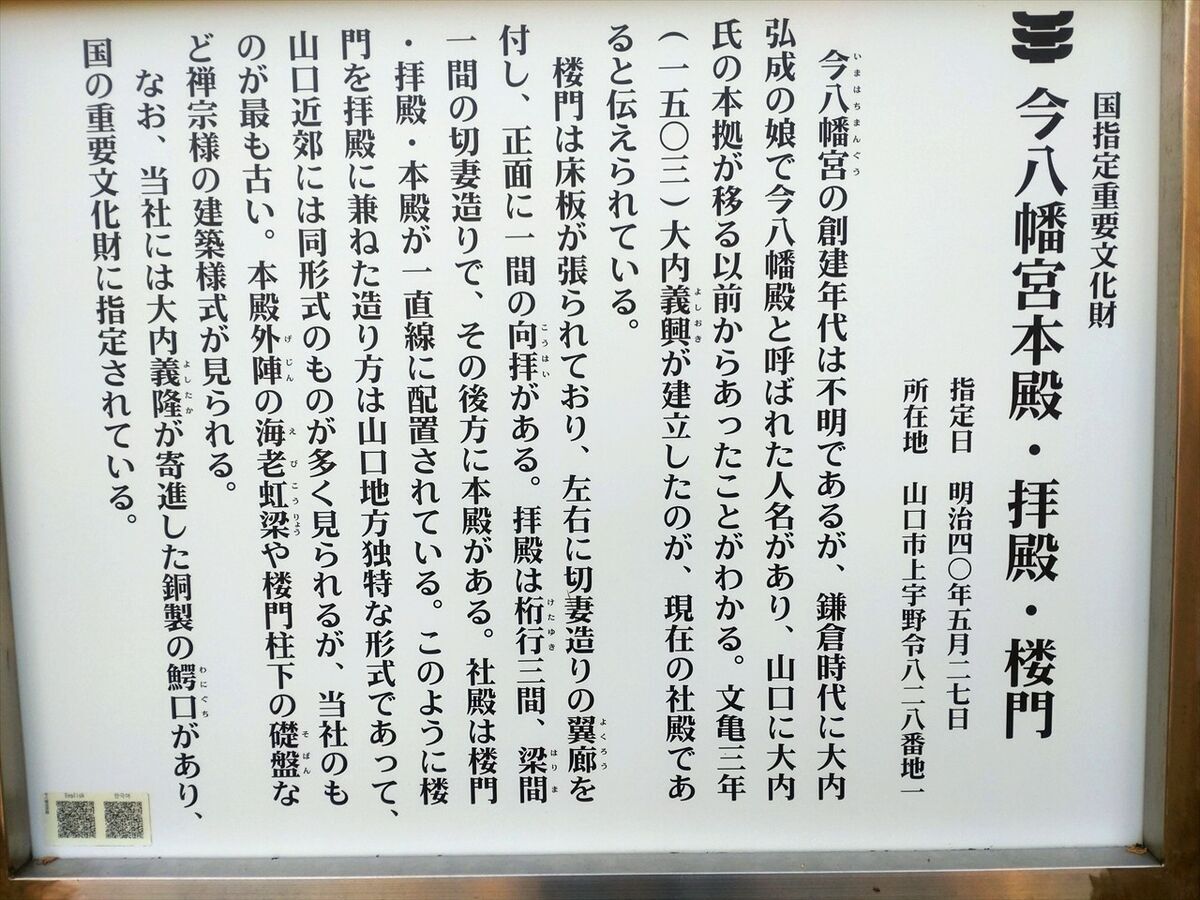 国指定重要文化財
今八幡宮本殿・拝殿・楼門
指定日　明治四〇年五月二七日
所在地　山口市上宇野令八二八番地一
今八幡宮の創建年代は不明であるが、鎌倉時代に大内
いまはちまんぐう
弘成の娘で今八幡殿と呼ばれた人名があり、山口に大内
氏の本拠が移る以前からあったことがわかる。文亀三年
（一五〇三）大内義興が建立したのが、現在の社殿であ
よしおき
ると伝えられている。
楼門は床板が張られており、左右に切妻造りの翼廊を
よくろう
付し、正面に一間の向拝がある。拝殿は桁行三間、梁間
こうはい
けたゆき
はりま
一間の切妻造りで、その後方に本殿がある。社殿は楼門
・拝殿・本殿が一直線に配置されている。このように楼
門を拝殿に兼ねた造り方は山口地方独特な形式であって、
山口近郊には同形式のものが多く見られるが、当社のも
のが最も古い。本殿外陣の海老虹梁や楼門柱下の礎盤な
げじん
えびこうりょう
そばん
ど禅宗様の建築様式が見られる。
なお、当社には大内義隆が寄進した銅製の鰐口があり、
よしたか
わにぐち
国の重要文化財に指定されている。
English
한국어